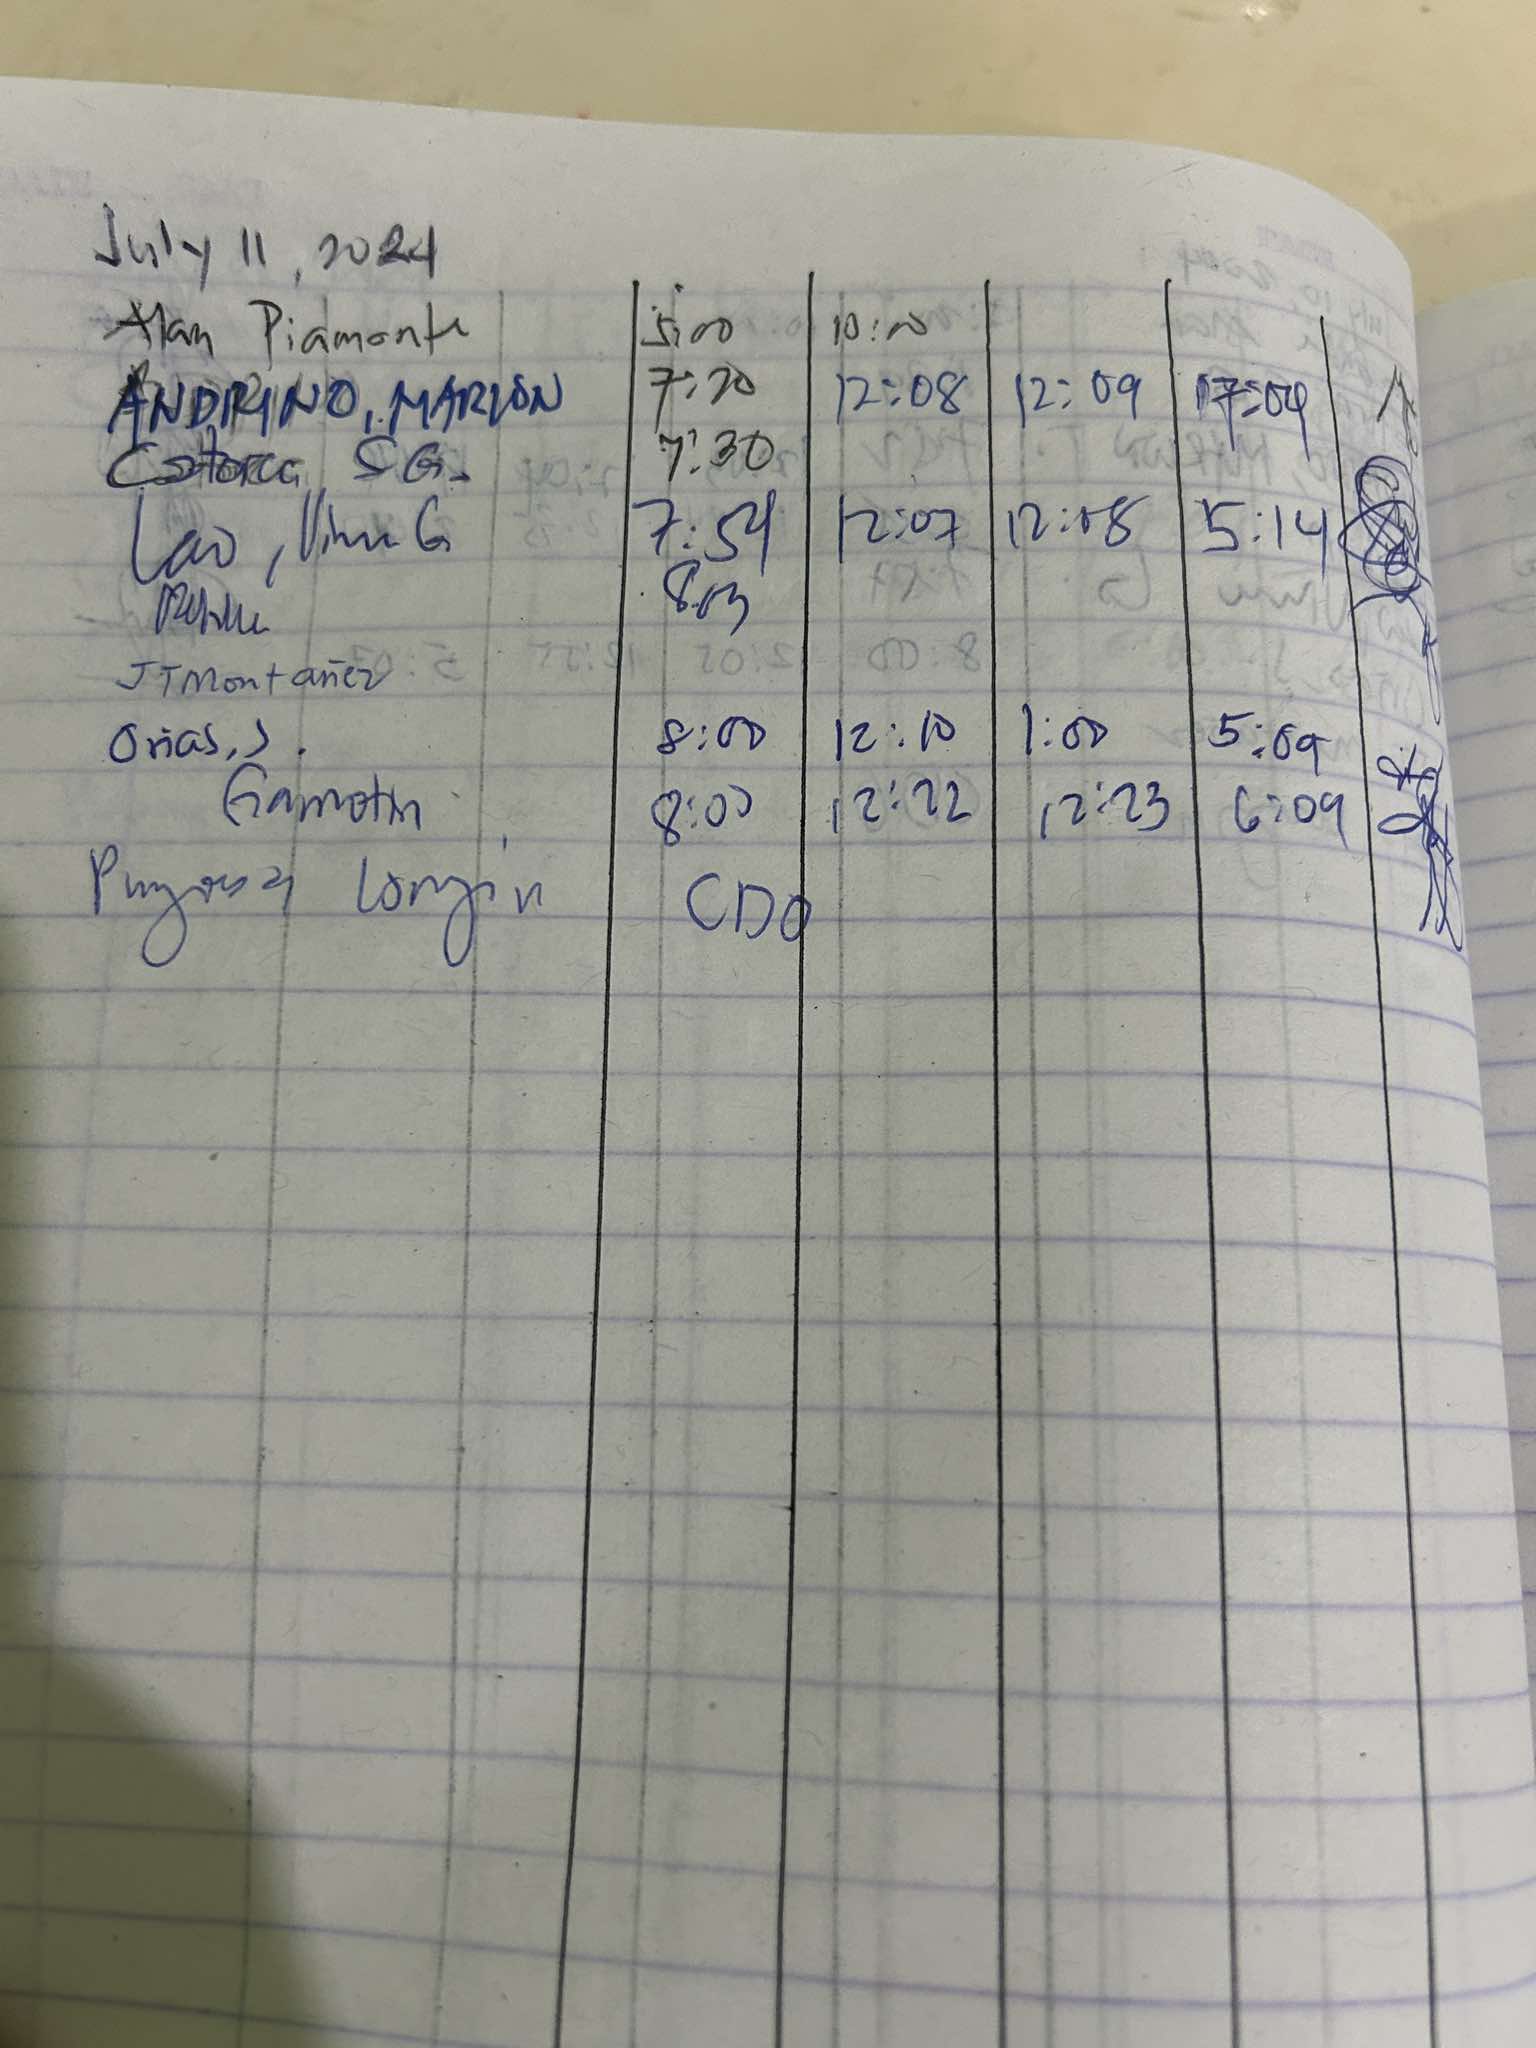 July 11, 2024
Alan Piamonte 5:00 10:00
ANDRINO, MARLON 7:20 12:08 12:09 17:04
S G. 7:30
Lao, G 7:54 12:07 12:08 5:14
8:03
JTMontañez
Orias, J. 8:00 12:10 1:00 5:09
Gamotin 8:00 12:22 12:23 6:09
Longjin CDO